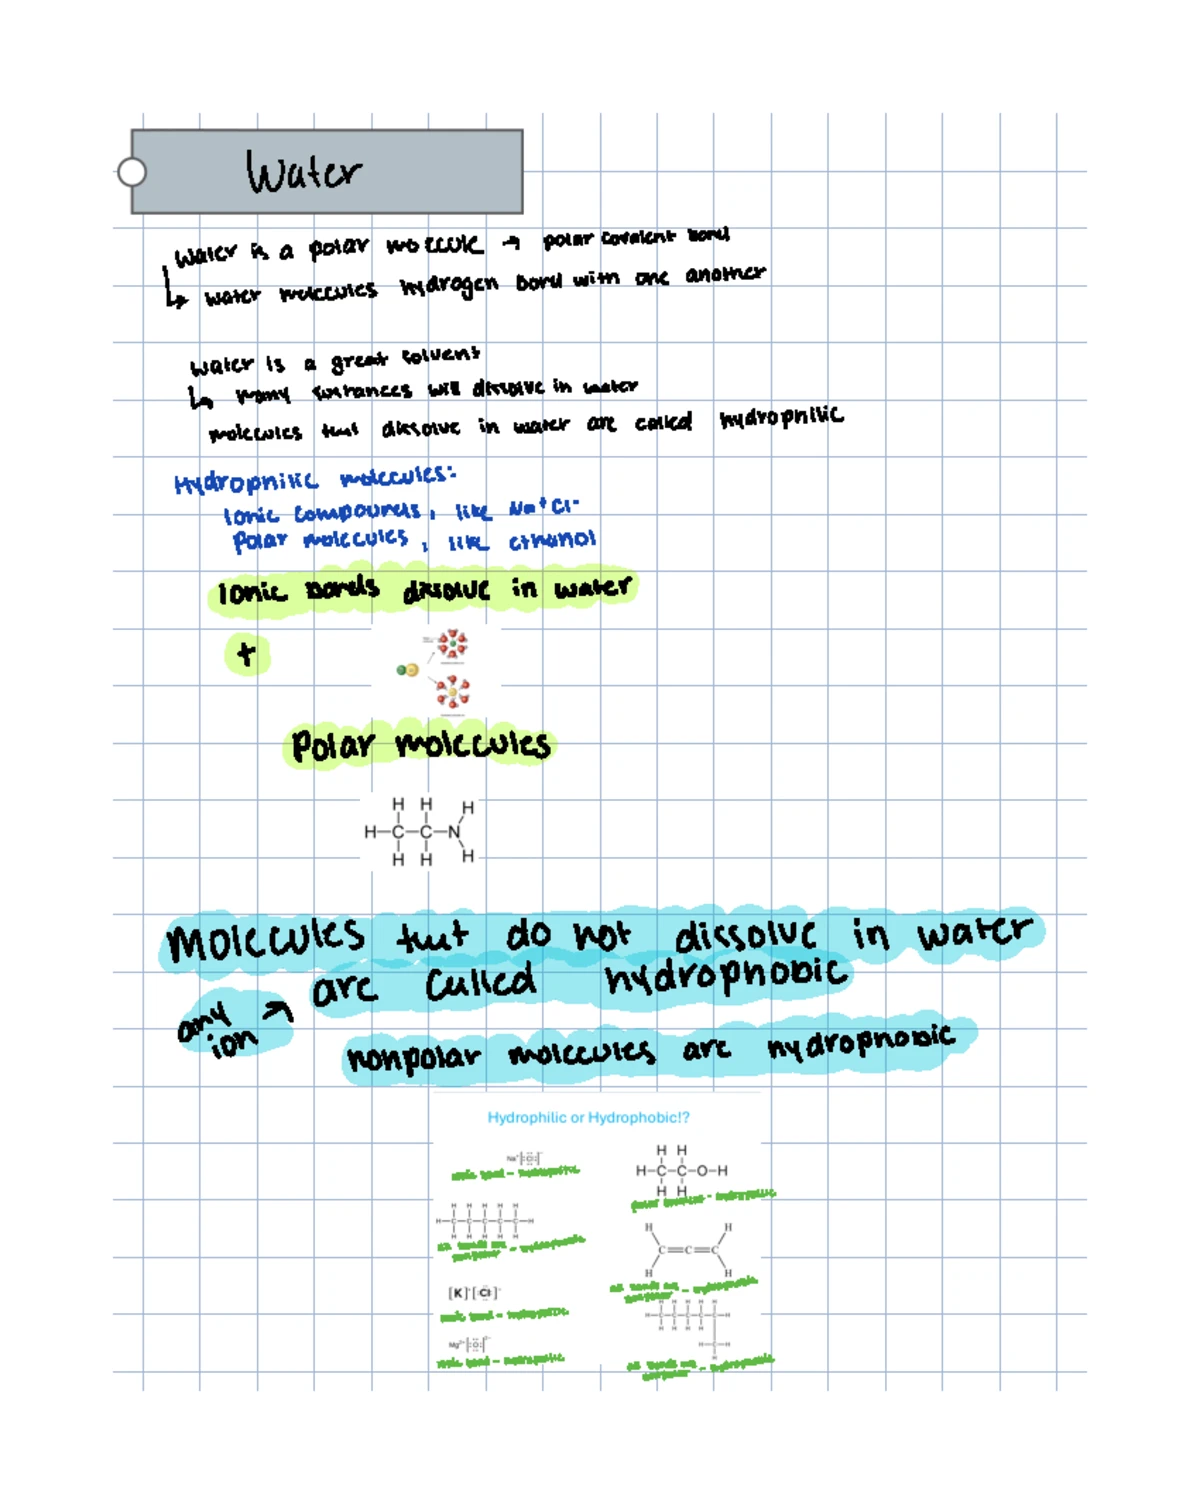 Water
Water is a polar molecule → polar covalent bond
↳ water molecules hydrogen bond with one another
Water is a great solvent
↳ many substances will dissolve in water
molecules that dissolve in water are called hydrophilic
Hydrophilic molecules:
Ionic compounds, like Na+Cl-
Polar molecules, like ethanol
Ionic bonds dissolve in water
+
Polar molecules
H H H
H-C-C-N
H H H
Molecules that do not dissolve in water
are called hydrophobic
any ion →
nonpolar molecules are hydrophobic
Hydrophilic or Hydrophobic!?
Na+[Cl]-
ionic bond - hydrophilic
H H
H-C-C-O-H
H H
polar covalent - hydrophilic
H H H H H
H-C-C-C-C-C-H
H H H H H
all bonds are nonpolar - hydrophobic
H H
C=C=C
H H
all bonds are nonpolar - hydrophobic
[K]+[Cl]-
ionic bond - hydrophilic
H H H H H
H-C-C-C-C-C-H
H H H H
H-C-H
H
all bonds are nonpolar - hydrophobic
Mg2+[O]2-
ionic bond - hydrophilic